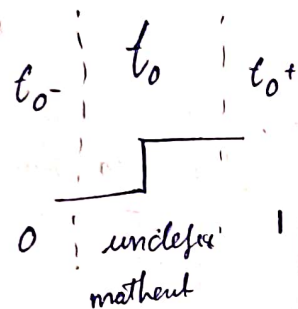 t₀- t₀ t₀+
0 undefin 1
mathemt